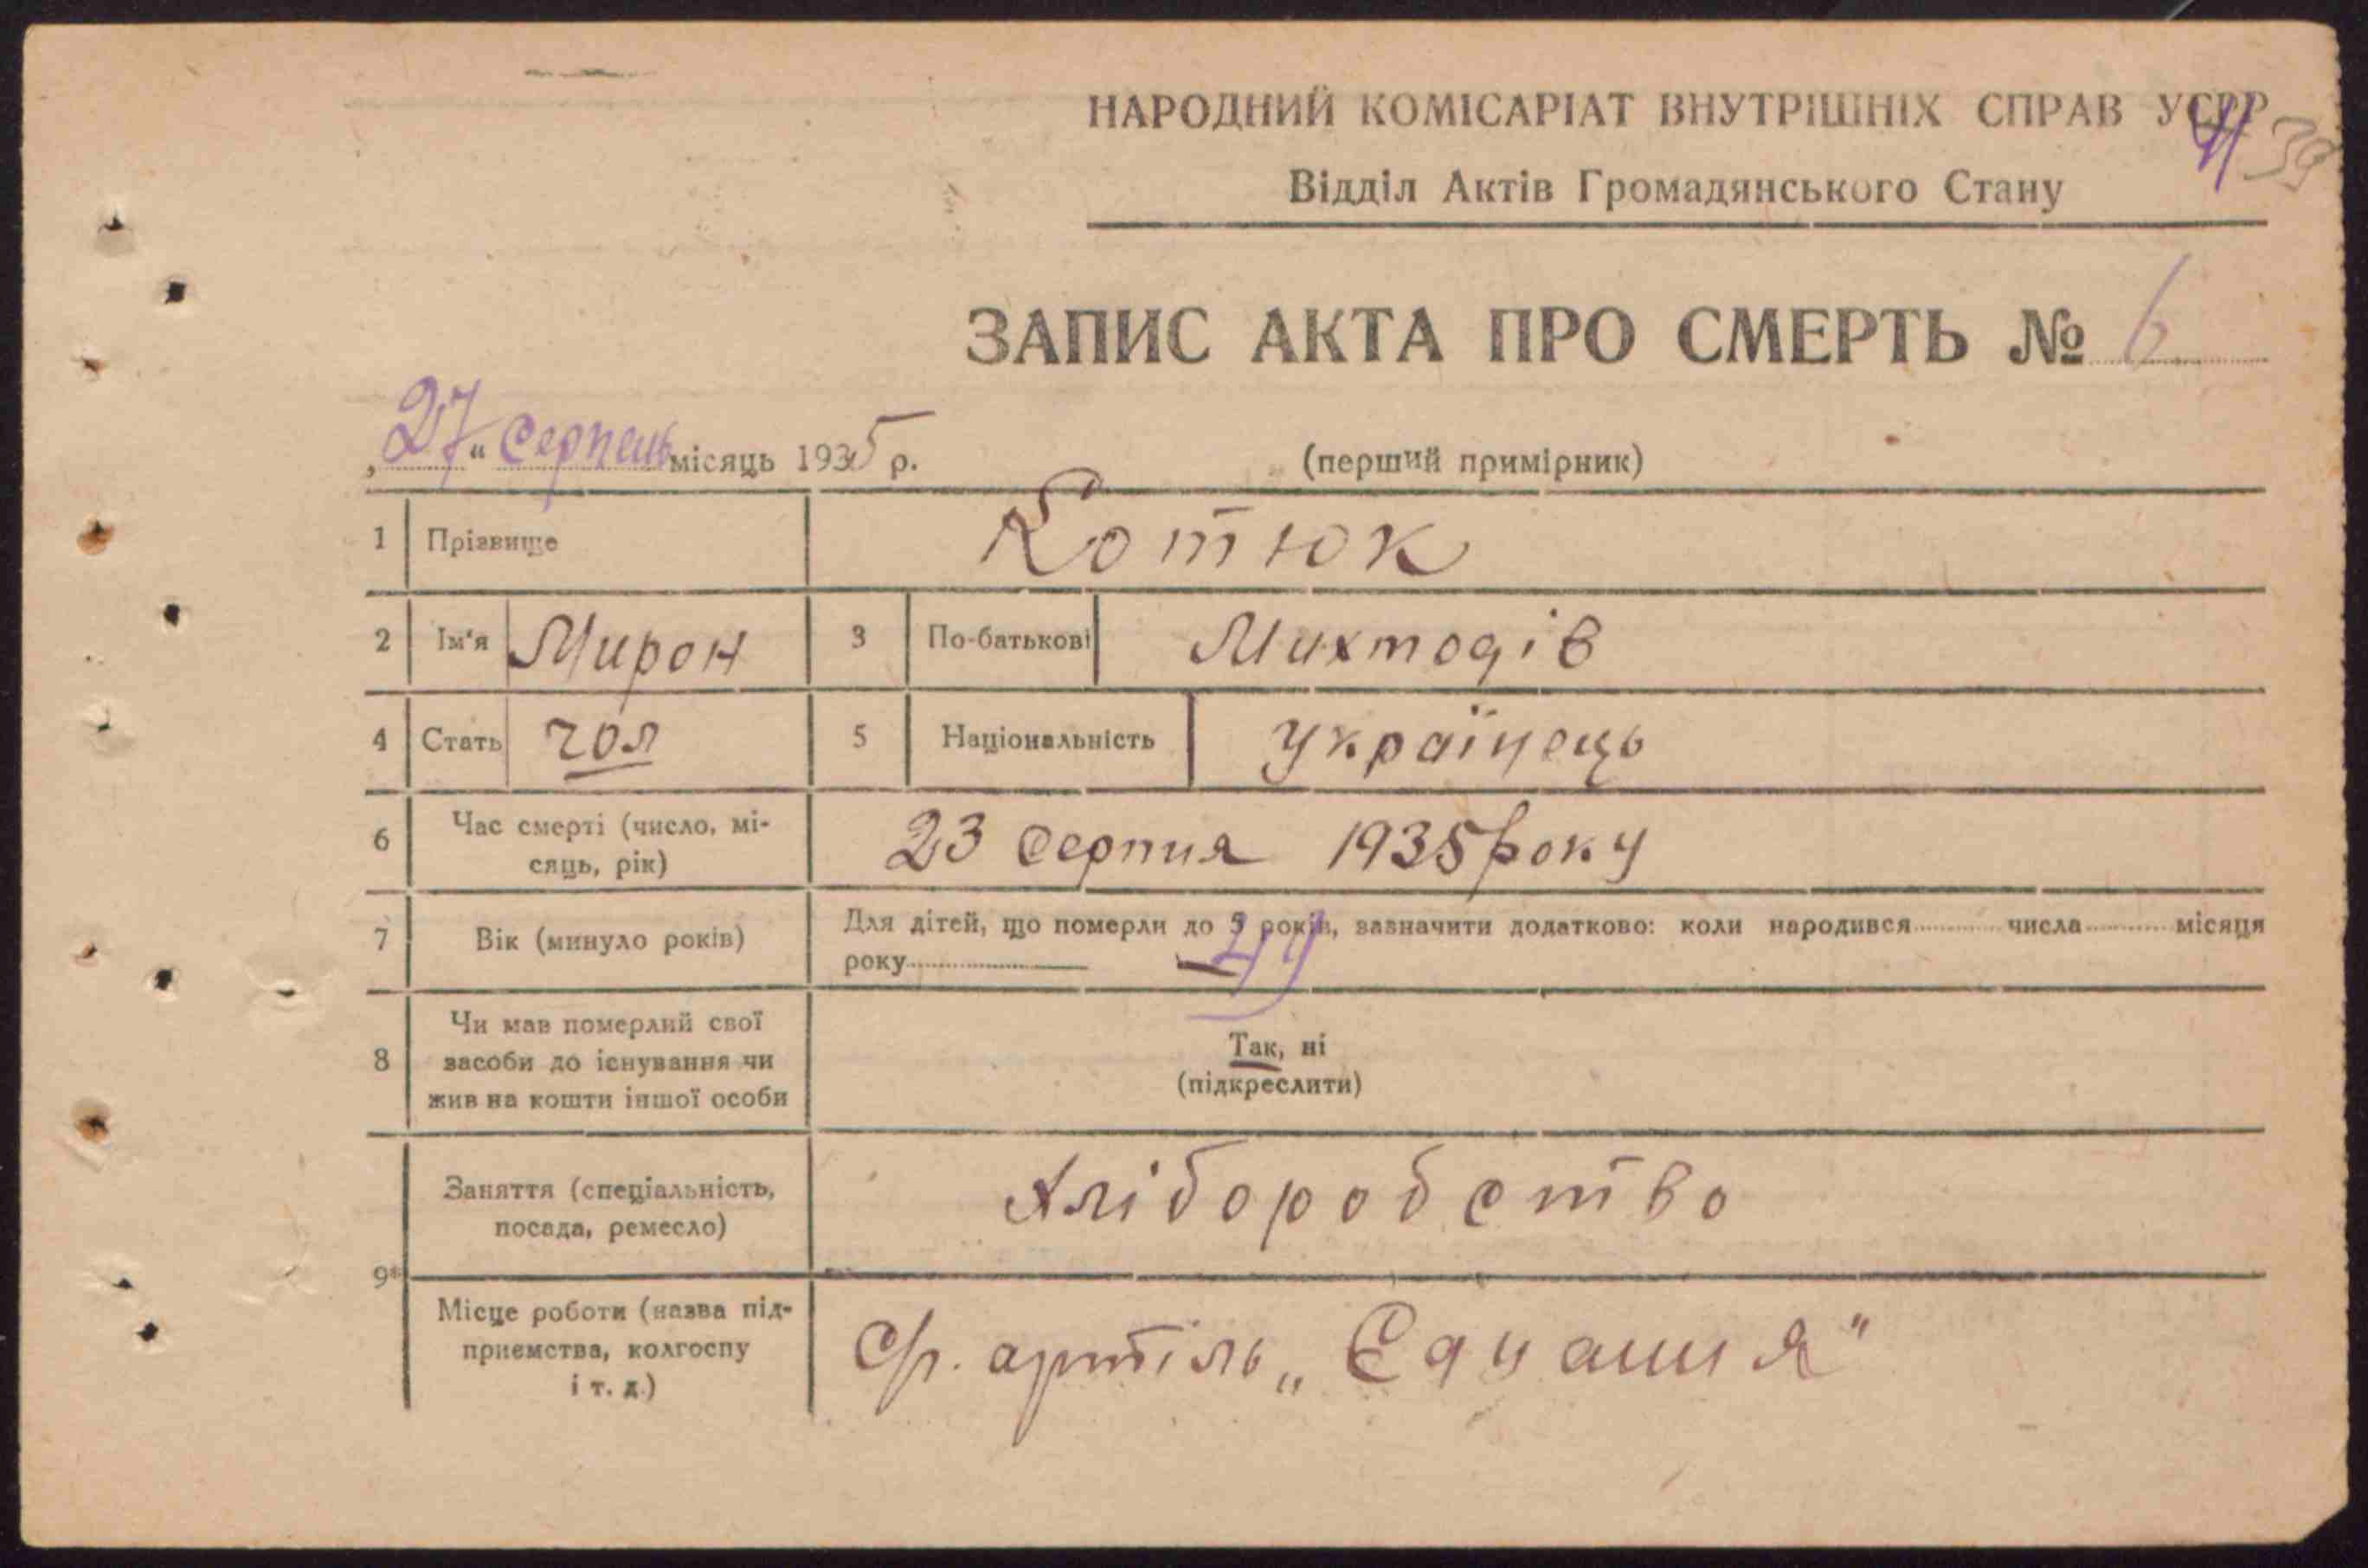 НАРОДНИЙ КОМІСАРІАТ ВНУТРІШНІХ СПРАВ УСРР
Відділ Актів Громадянського Стану
ЗАПИС АКТА ПРО СМЕРТЬ № 6
„27“ Серпень місяць 1935 р.
(перший примірник)
1 Прізвище Котюк
2 Ім'я Мирон 3 По-батькові Михтодів
4 Стать чол 5 Національність Українець
6 Час смерті (число, мі-
сяць, рік)
23 серпня 1935 року
7 Вік (минуло років)
Для дітей, що померли до 5 років, зазначити додатково: коли народився числа місяця
року
8 Чи мав померлий свої
засоби до існування чи
жив на кошти іншої особи
Так, ні
(підкреслити)
9* Заняття (спеціальність,
посада, ремесло)
Хліборобство
Місце роботи (назва під-
приємства, колгоспу
і т. д.)
артіль „Єднання"